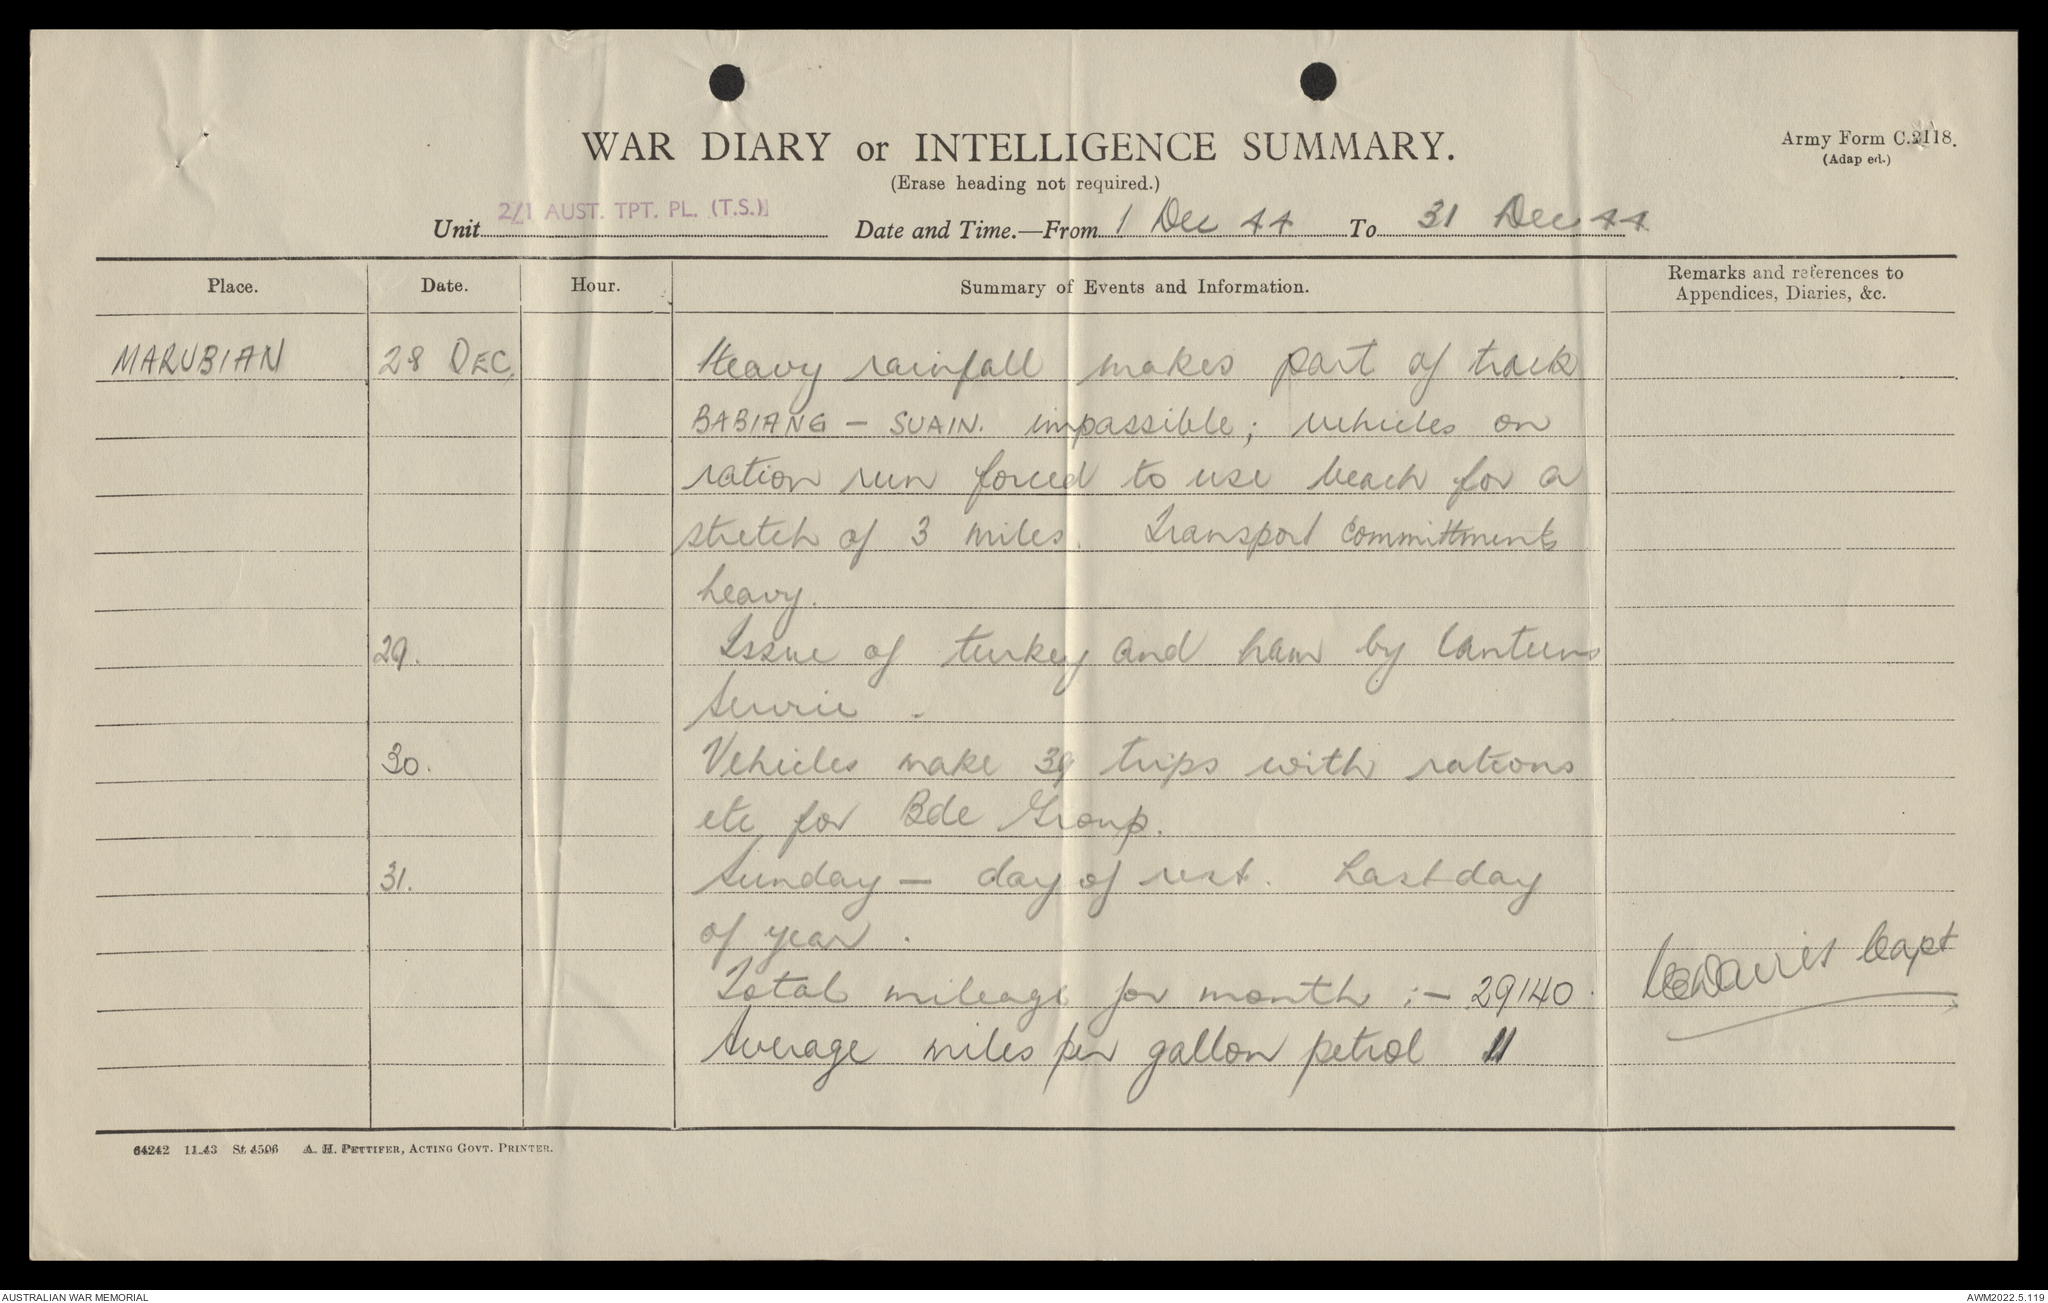 WAR DIARY or INTELLIGENCE SUMMARY.
Army Form C.2118.
(Adapted.)
(Erase heading not required.)
Unit 2/1 AUST. TPT. PL. (T.S.) Date and Time.—From 1 Dec 44 To 31 Dec 44
Place. Date. Hour. Summary of Events and Information. Remarks and references to
Appendices, Diaries, &c.
MARUBIAN 28 DEC, Heavy rainfall makes part of track
BABIANG – SUAIN. impassible; vehicles on
ration run forced to use beach for a
stretch of 3 miles. Transport committments
heavy.
29. Issue of turkey and ham by Canteens
Service.
30. Vehicles make 39 trips with rations
etc for Bde Group.
31. Sunday – day of rest. Last day
of year.
Total mileage for month :- 29140. Davies Capt
Average miles per gallon petrol 11
64242 11.43 St 4506 A. H. PETTIFER, ACTING GOVT. PRINTER.
AUSTRALIAN WAR MEMORIAL AWM2022.5.119